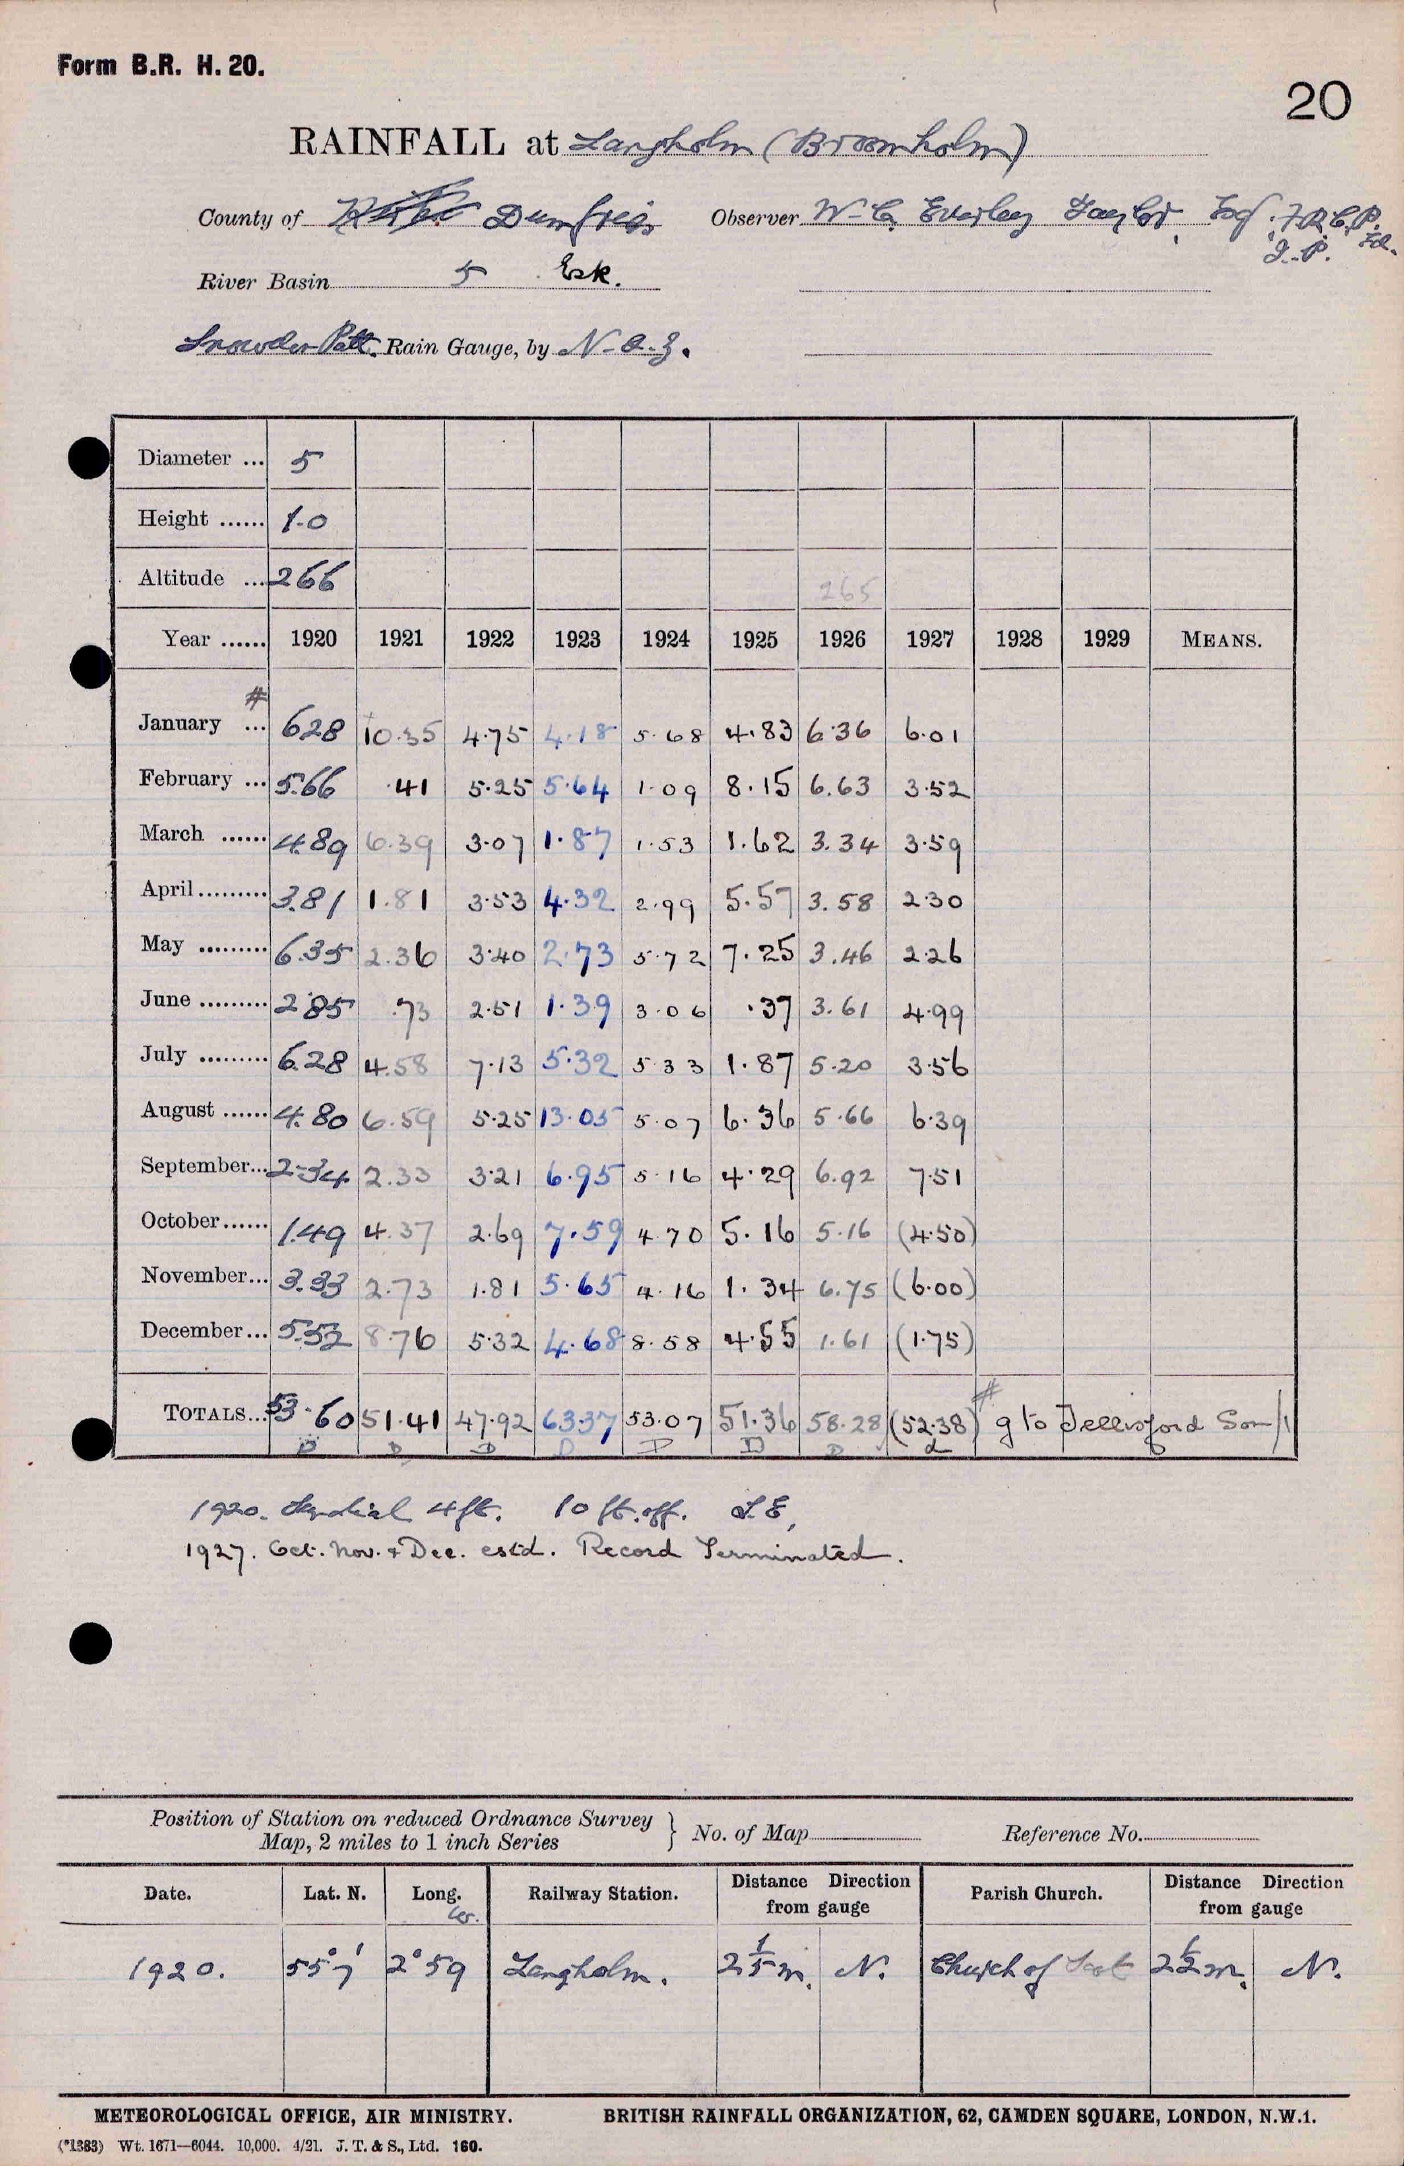 Form B.R. H. 20.
20
RAINFALL at Langholm (Broomholm)
County of Dumfries Observer W. C. Everley Taylor, Esq. F.R.C.P. Ed. J.P.
River Basin 5 Esk.
Snowdon Patt. Rain Gauge, by N. & Z.
Diameter ... 5
Height ...... 1-0
Altitude ... 266 265
Year ...... 1920 1921 1922 1923 1924 1925 1926 1927 1928 1929 MEANS.
#
January ... 6.28 10.35 4.75 4.18 5.68 4.83 6.36 6.01
February ... 5.66 .41 5.25 5.64 1.09 8.15 6.63 3.52
March ...... 4.89 6.39 3.07 1.87 1.53 1.62 3.34 3.59
April ......... 3.81 1.81 3.53 4.32 2.99 5.57 3.58 2.30
May ......... 6.35 2.36 3.40 2.73 5.72 7.25 3.46 2.26
June ......... 2.85 .73 2.51 1.39 3.06 .37 3.61 4.99
July ......... 6.28 4.58 7.13 5.32 5.33 1.87 5.20 3.56
August ...... 4.80 6.59 5.25 13.05 5.07 6.36 5.66 6.39
September... 2.34 2.33 3.21 6.95 5.16 4.29 6.92 7.51
October...... 1.49 4.37 2.69 7.59 4.70 5.16 5.16 (4.50)
November... 3.33 2.73 1.81 5.65 4.16 1.34 6.75 (6.00)
December... 5.52 8.76 5.32 4.68 8.58 4.55 1.61 (1.75)
#
TOTALS... 53.60 51.41 47.92 63.37 53.07 51.36 58.28 (52.38) g to Tellisford Som/
D D D D D D D d
1920. 4 ft. 10 ft. off. S.E.
1927. Oct. Nov. & Dec. estd. Record Terminated.
Position of Station on reduced Ordnance Survey
Map, 2 miles to 1 inch Series } No. of Map Reference No.
Date. Lat. N. Long. W. Railway Station. Distance Direction from gauge Parish Church. Distance Direction from gauge
1920. 55° 7' 2° 59 Langholm. 2 1/5 m. N. Church of Scot 2 1/2 m. N.
METEOROLOGICAL OFFICE, AIR MINISTRY. BRITISH RAINFALL ORGANIZATION, 62, CAMDEN SQUARE, LONDON, N.W.1.
(*1383) Wt. 1671—6044. 10,000. 4/21. J. T. & S., Ltd. 160.